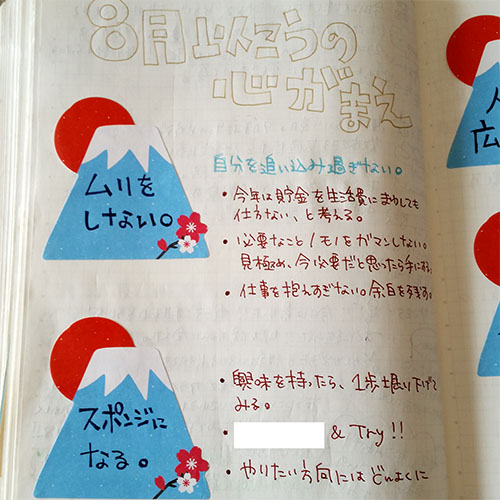 8月以こうの
心がまえ
ムリを
しない。
自分を追い込み過ぎない。
・今年は貯金を生活費にまわしても
仕方ない、と考える。
・必要なこと/モノをガマンしない。
見極め、今必要だと思ったら手にする。
・仕事を抱えすぎない。余白を残す。
スポンジに
なる。
・興味を持ったら、1歩掘り下げて
みる。
・ & Try!!
・やりたい方向にはどんよくに
広